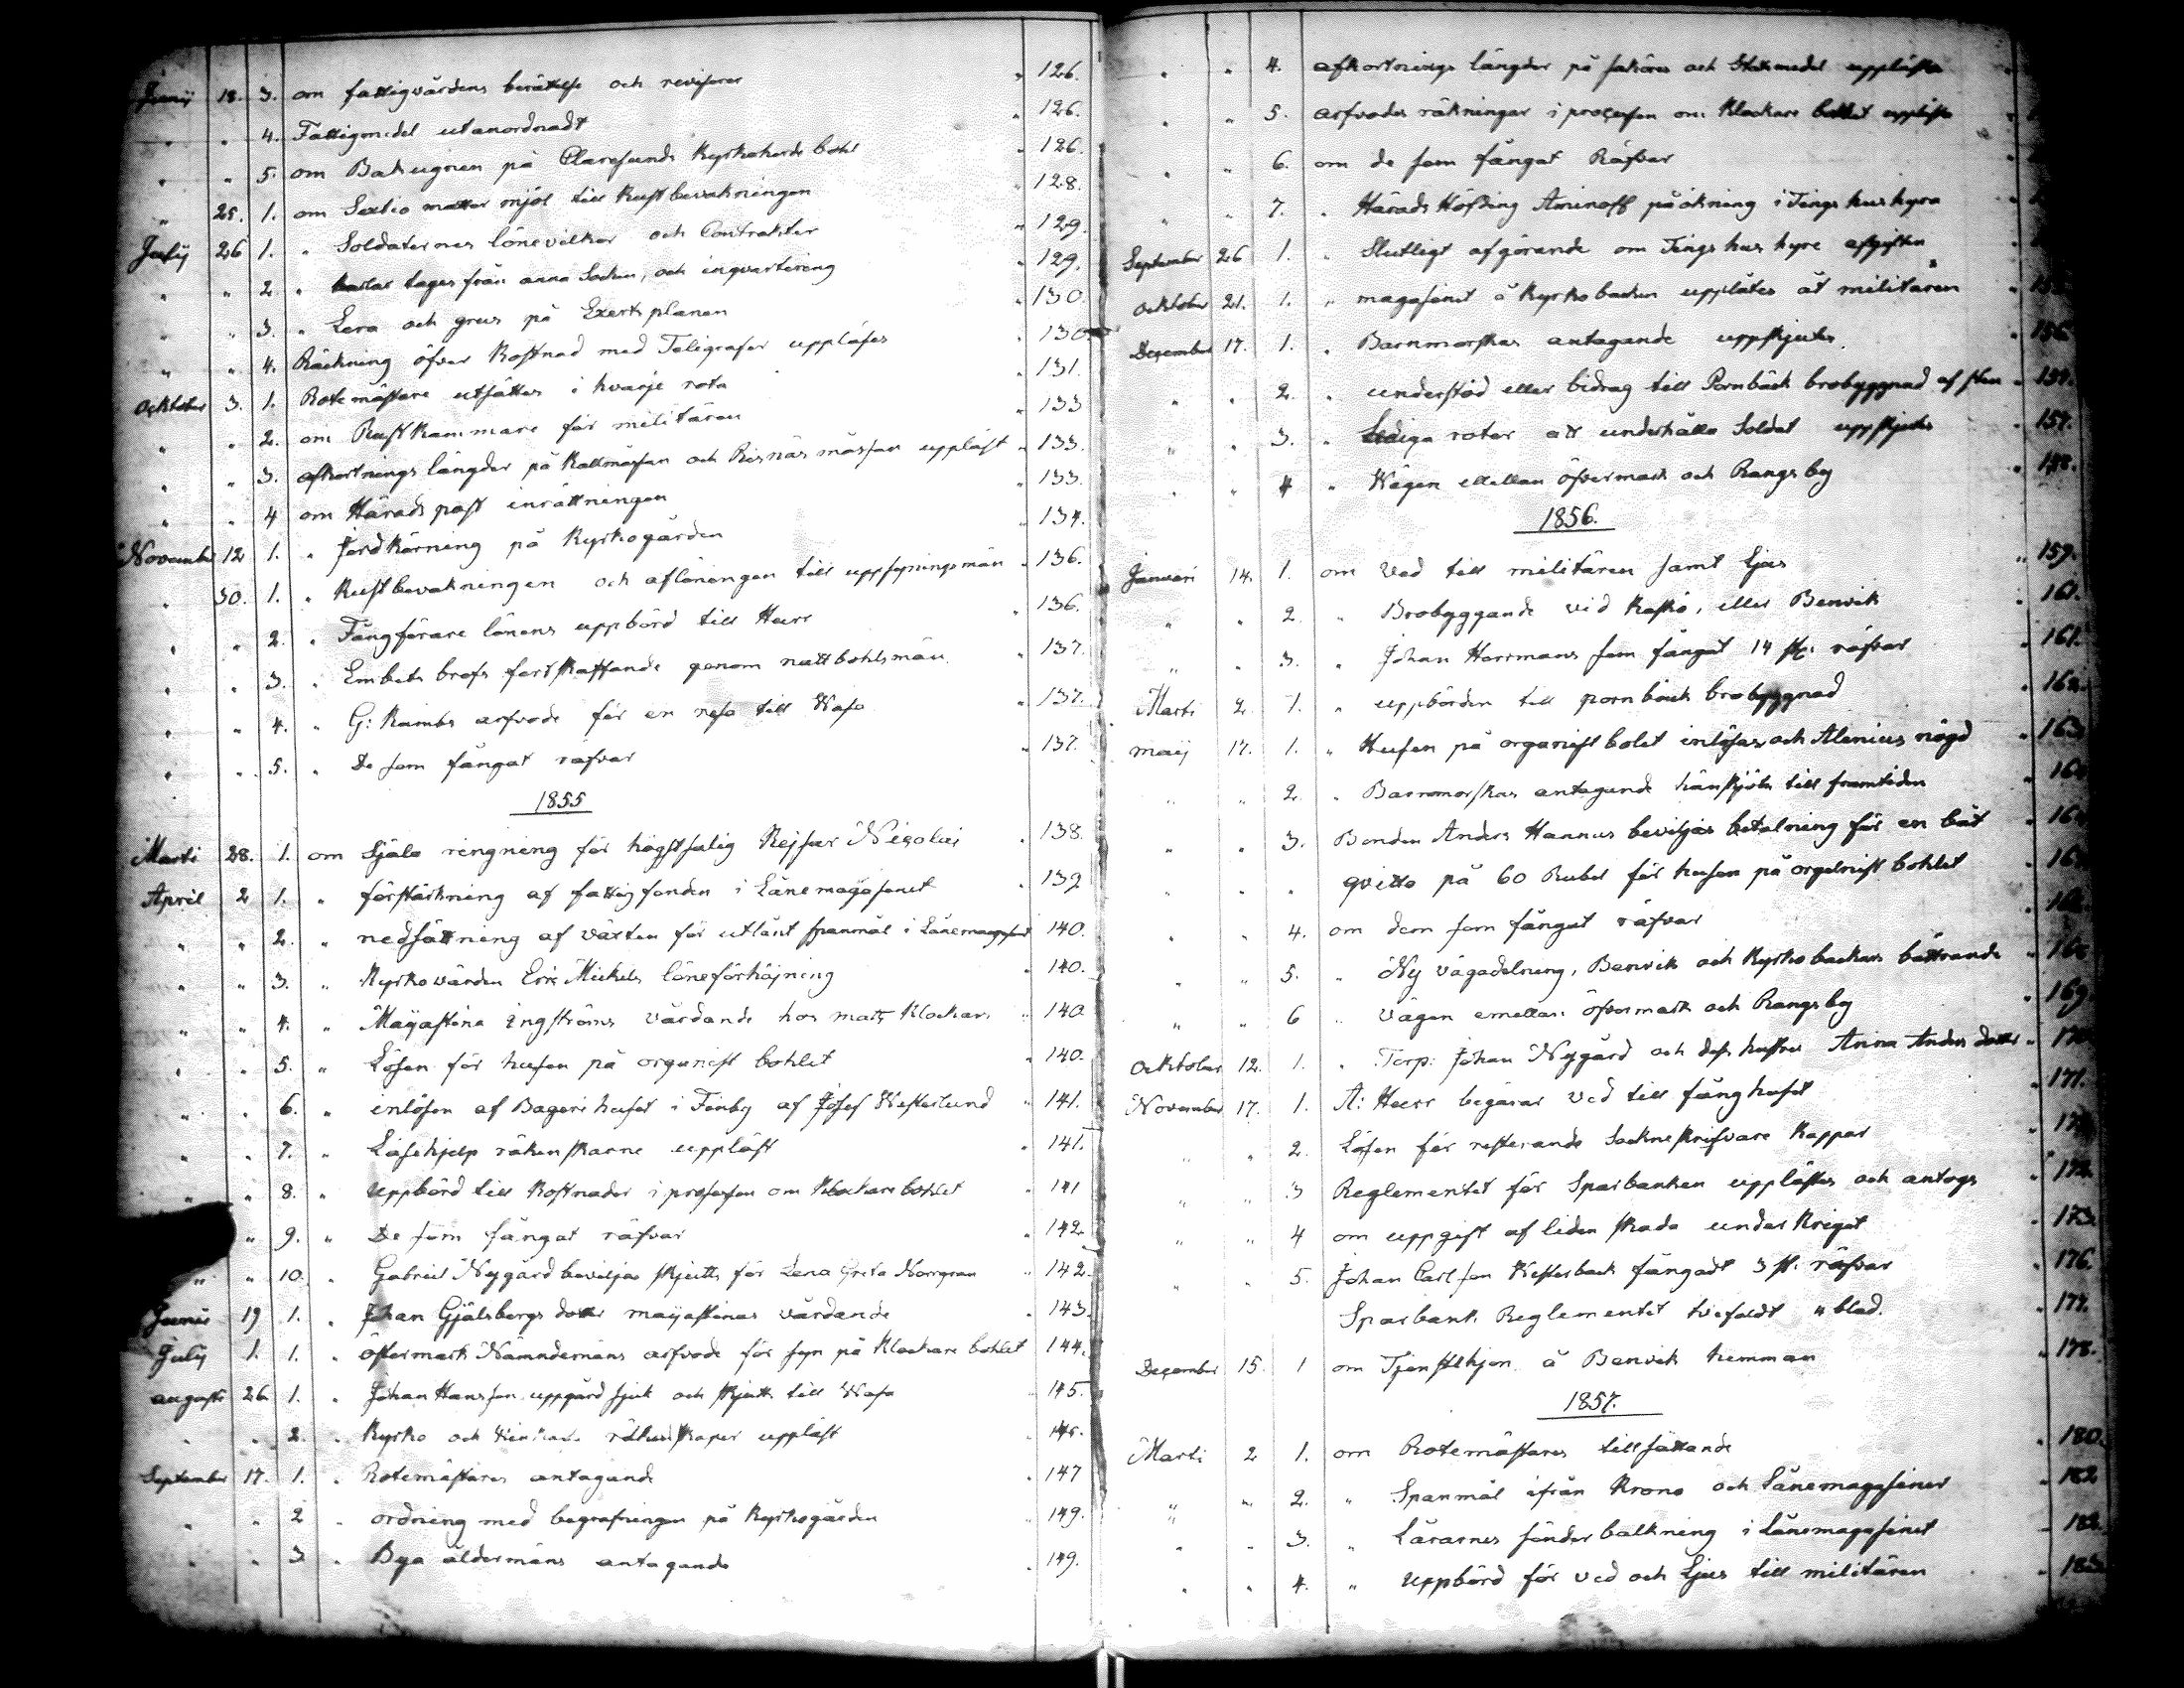 Junij 18. 3. om fattigvårdens berättelse och revisorer " 126.
" " 4. Fattigmedel utanordnadt " 126.
" " 5. om Bakugnen på Kyrkoherde bohl " 126.
" 25. 1. om Sextio mattor mjöl till Kustbevakningen " 128.
July 26 1. " Soldaternes lönevilkor och Contrakter " 129.
" " 2 " karlar tages från anna Socken, och inqvartering " 129.
" " 3. " Lera och grus på Exertsplanen " 130.
" " 4. Räckning öfver Kostnad med Teligrafer uppläses " 130
Ocktober 3. 1. Rotemästare utsättes i hvarje rota " 131.
" " 2. om Rustkammare för militären " 133
" " 3. afkortnings längder på Kallmässan och Risnäs mässan uppläst " 133.
" " 4 om Härads post inrättningen " 133.
November 12 1. " Jordkörning på Kyrkogården " 134.
" 30. 1. " Kustbevakningen och aflöningen till uppsyningsmän " 136.
" " 2. " Fångförare lönens uppbörd till Hurr " 136.
" " 3. " Embets brefs fortskaffande genom nattbohlsmän " 137.
" " 4. " G: Rambs arfvode för en resa till Wasa " 137.
" " 5. " De som fångat räfvar " 137.
1855
Marti 28. 1. om Själa ringning för högstsalig Kejsar Nicolai " 138.
April 2 1. " förstärkning af fattigfonden i Lånemagasenet " 139
" " 2. " nedsättning af växten för utlånt spanmål i Lånemagasinet 140.
" " 3. " Kyrkovärden Eric Mickels löneförhöjning " 140.
" " 4. " Majastina Engströms vårdande hos matts Klockars " 140
" " 5. " Lösen för husen på organist bohlet " 140.
" " 6. " inlösen af Bageri huset i Finby af Josef Westerlund " 141.
" " 7. " Låsehjelp räkenskarne uppläst " 141.
" " 8. " Uppbörd till Kostnader i prosessen om Klockare bohlet " 141
" 9. " De som fångat räfvar " 142
" " 10. " Gabriel Nygård beviljas skjutts för Lena Greta Norrgran " 142.
Junii 19 1. " Johan Gjälsbergs dotter majastinas vårdande " 143.
July 1. 1. " östermark Nämndemäns arfvode för syn på Klockare bohlet 144.
augusti 26. 1. " Johan Hansson uppgård sjuk och skjuts till Wasa " 145.
" " 2. " Kyrko och räkenskaper uppläst " 145.
September 17. 1. " Rotemästares antagande " 147
" " 2 " ordning med begrafningen på Kyrkogården " 149.
" " 3. " Bya åldermäns antagande " 149.
" " 4. afkortnings längder på och uppläste
" " 5. arfvodes räkningar i processen om Klockare bohlet uppläste
" " 6. om de som fångat Räfvar
" " 7. " Härads Höfding Aminoff påökning i Tings hushyra
September 26 1. " Slutligt afgörande om Tings hus hyre afgiften
Ocktober 21. 1. " magasinet å Kyrkobacken upplåtes åt militären
December 17. 1. " Barnmorskas antagande uppskjutes. " 156
" " 2. " understöd eller bidrag till Pornbäck brobyggnad af sten " 157.
" " 3. " Lediga rotar att underhålla Soldat uppskjutes " 157.
" " 4 " Wägen emellan öfvermark och Rangsby " 158.
1856.
Januari 14. 1. om Ved till militären samt ljus " 159.
" " 2. " Brobyggande vid Kaskö, eller Benvik " 161.
" " 3. " Johan Herrmans som fångat 14 st. räfvar " 161.
Marti 2. 1. " uppbörden till pornbäck brobyggnad " 162.
maij 17. 1. " Husen på organist bolet inlöses och Alenius nögd " 163
" " 2. " Barnmorskas antagande hänskjöts till framtiden
" " 3. Bonden Anders Hannus beviljas betalning för en båt
" " " qvitto på 60 Rubel för husen på orgelnist bohlet
" " 4. om dem som fångat räfvar
" " 5. " Ny vägadelning, Benvik och Kyrkobackars bättrande
" " 6 " vägen emellan öfvermark och Rangsby " 169
Ocktober 12. 1. " Torp: Johan Nygård och dess hustru Anna Anders dotter "
November 17. 1. A: Hurr begärar ved till fånghuset " 171.
" " 2. Lösen för resterande Sockneskrifvare Kappar
" " 3 Reglementet för Sparbanken upplästes och antogs " 172.
" " 4 om uppgift af liden skada under Kriget " 173.
" " 5. Johan Carlsson Westerback fångadt 3 st. räfvar " 176.
Sparbank. Reglementet tvefaldt " blad. " 177.
December 15. 1 om Tjensthjon å Benvik hemman " 178.
1857.
Marti 2 1. om Rotemästares tillsättande " 180.
" " 2. " Spanmål ifrån Krono och Lånemagasiner " 182
" " 3. " Lårarnes sönderbalkning i Lånemagasinet " 182.
" " 4. " Uppbörd för ved och Ljus till militären " 183